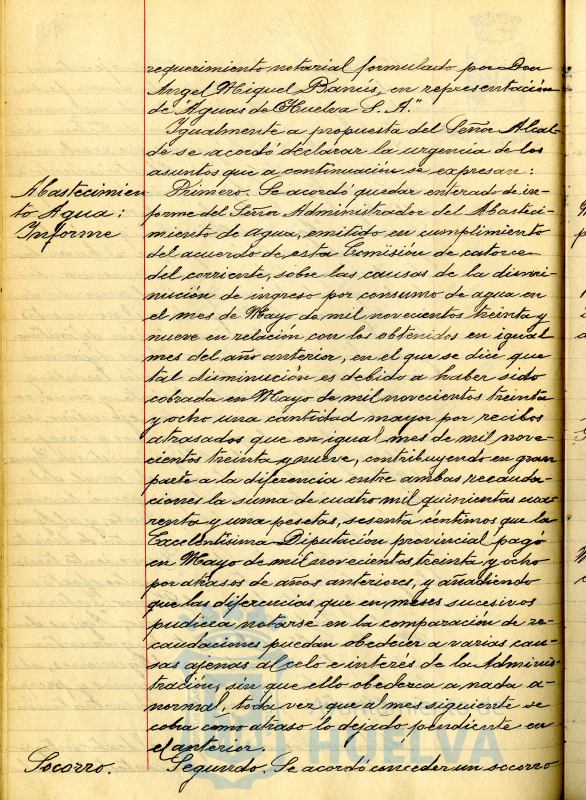 requerimiento notarial formulado por Don
Angel Miguel Banús, en representación
de "Aguas de Huelva S. A."
Igualmente a propuesta del Señor Alcal-
de se acordó declarar la urgencia de los
asuntos que a continuación se expresan:
Abastecimien
to Agua:
Informe
Primero. Se acordó quedar enterado de in-
forme del Señor Administrador del Abasteci-
miento de agua, emitido en cumplimiento
del acuerdo de esta Comisión de catorce
del corriente, sobre las causas de la dismi-
nución de ingreso por consumo de agua en
el mes de Mayo de mil novecientos treinta y
nueve en relación con los obtenidos en igual
mes del año anterior, en el que se dice que
tal disminución es debido a haber sido
cobrada en Mayo de mil novecientos treinta
y ocho una cantidad mayor por recibos
atrasados que en igual mes de mil nove-
cientos treinta y nueve, contribuyendo en gran
parte a la diferencia entre ambas recauda-
ciones la suma de cuatro mil quinientas cua-
renta y una pesetas, sesenta céntimos que la
Excelentísima Diputación provincial pagó
en Mayo de mil novecientos treinta y ocho
por atrasos de años anteriores, y añadiendo
que las diferencias que en meses sucesivos
pudiera notarse en la comparación de re-
caudaciones puedan obedecer a varias cau-
sas ajenas al celo e interés de la Adminis-
tración, sin que ello obedezca a nada a-
normal, toda vez que al mes siguiente se
cobra como atraso lo dejado pendiente en
el anterior.
Socorro.
Segundo. Se acordó conceder un socorro
HUELVA